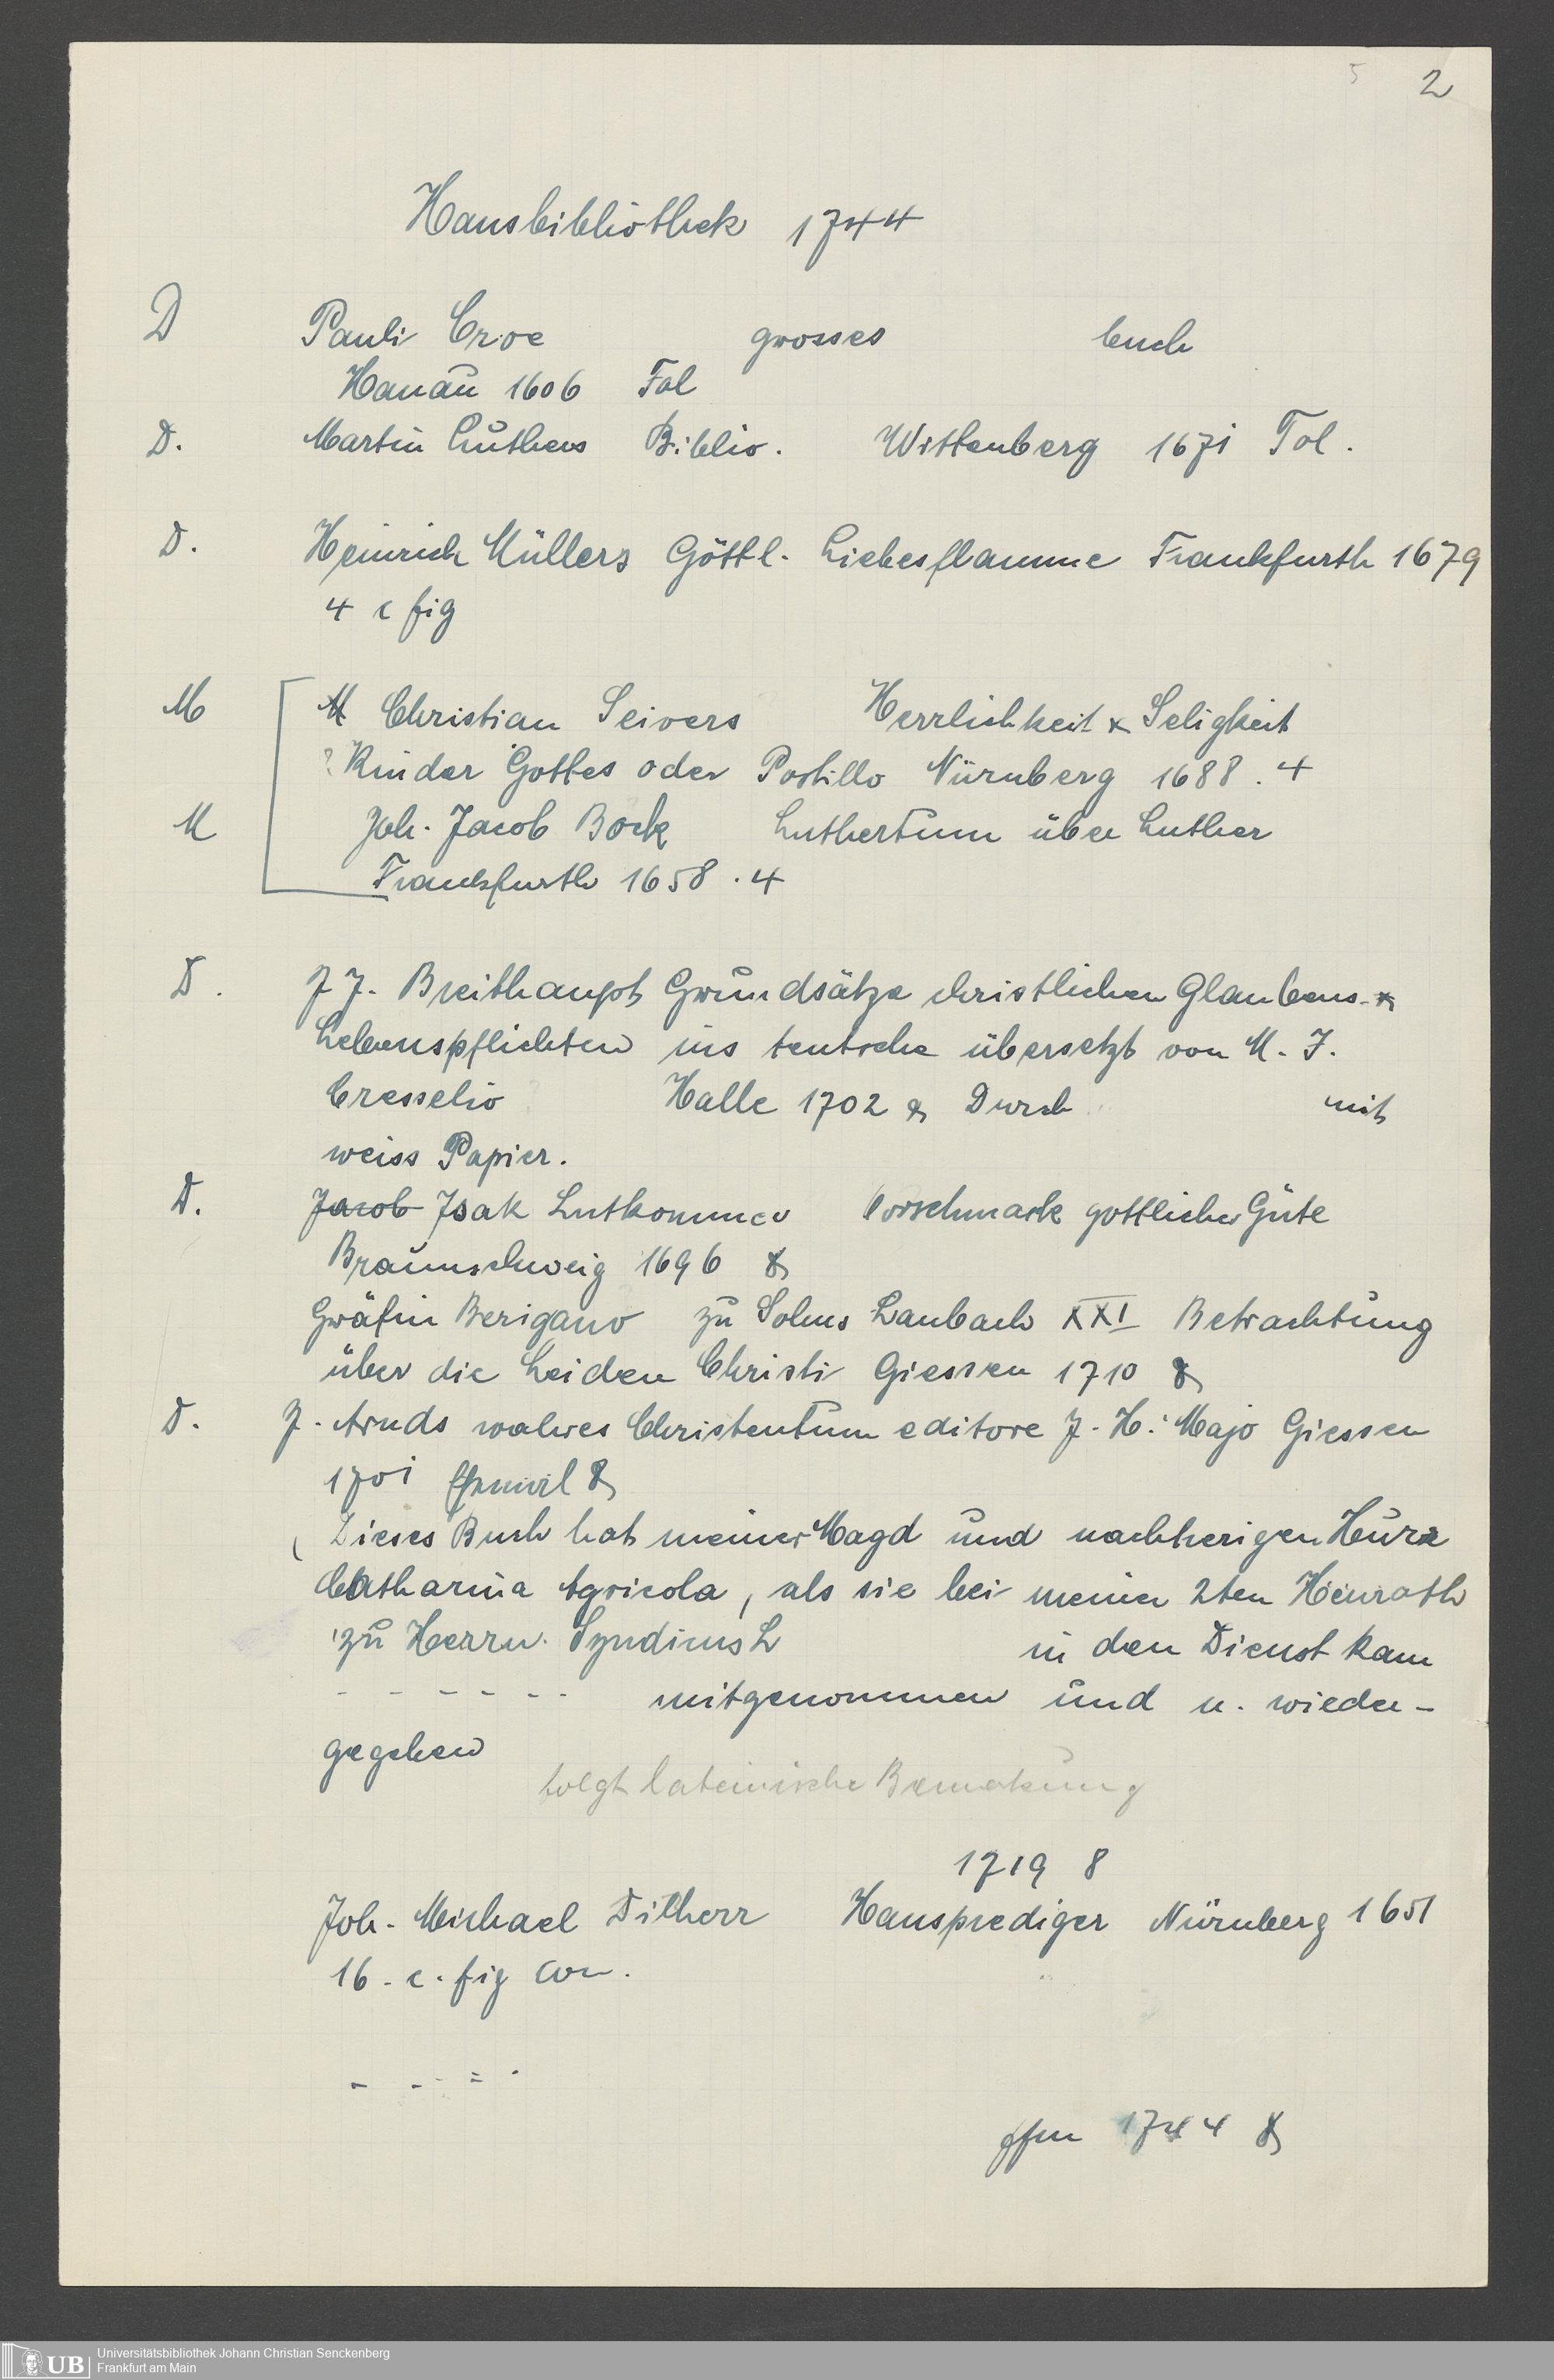 5 2
Hausbibliothek 1744
D Pauli Croe grosses buch
Hanau 1606 Fol
D. Martin Luthers Biblio. Wittenberg 1671 Fol.
D. Heinrich Müllers Göttl. Liebesflamme Frankfurth 1679
4 c fig
M M Christian Scivers Herrlichkeit & Seligkeit
? Kinder Gottes oder Postillo Nürnberg 1688. 4
M Joh. Jacob Bock Luthertum über Luther
Frankfurth 1658. 4
D. J J. Breithaupt Grundsätze christlichen Glaubens &
Lebenspflichten ins teutsche übersetzt von M. J.
Cresselio Halle 1702 8 Durch mit
weiss Papier.
D. Jacob Isak Lutkommer Vorschmack gottlicher Güte
Braunschweig 1696 8
Gräfin Berigano zu Solms Laubach XXI Betrachtung
über die Leiden Christi Giessen 1710 8
D. J. Arnds wahres Christentum editore J. H. Majo Giessen
1701 8
(Dieses Buch hat meiner Magd und nachherigen Hure
Catharina Agricola, als sie bei meiner 2ten Heurath
zu Herrn. Syndicus L in den Dienst kam
- - - - - - mitgenommen und n. wieder-
gegeben
folgt lateinische Bemerkung
1719 8
Joh. Michael Dilherr Hausprediger Nürnberg 1651
16. c. fig
- - - = -
ffm 1744 8
UB Universitätsbibliothek Johann Christian Senckenberg
Frankfurt am Main